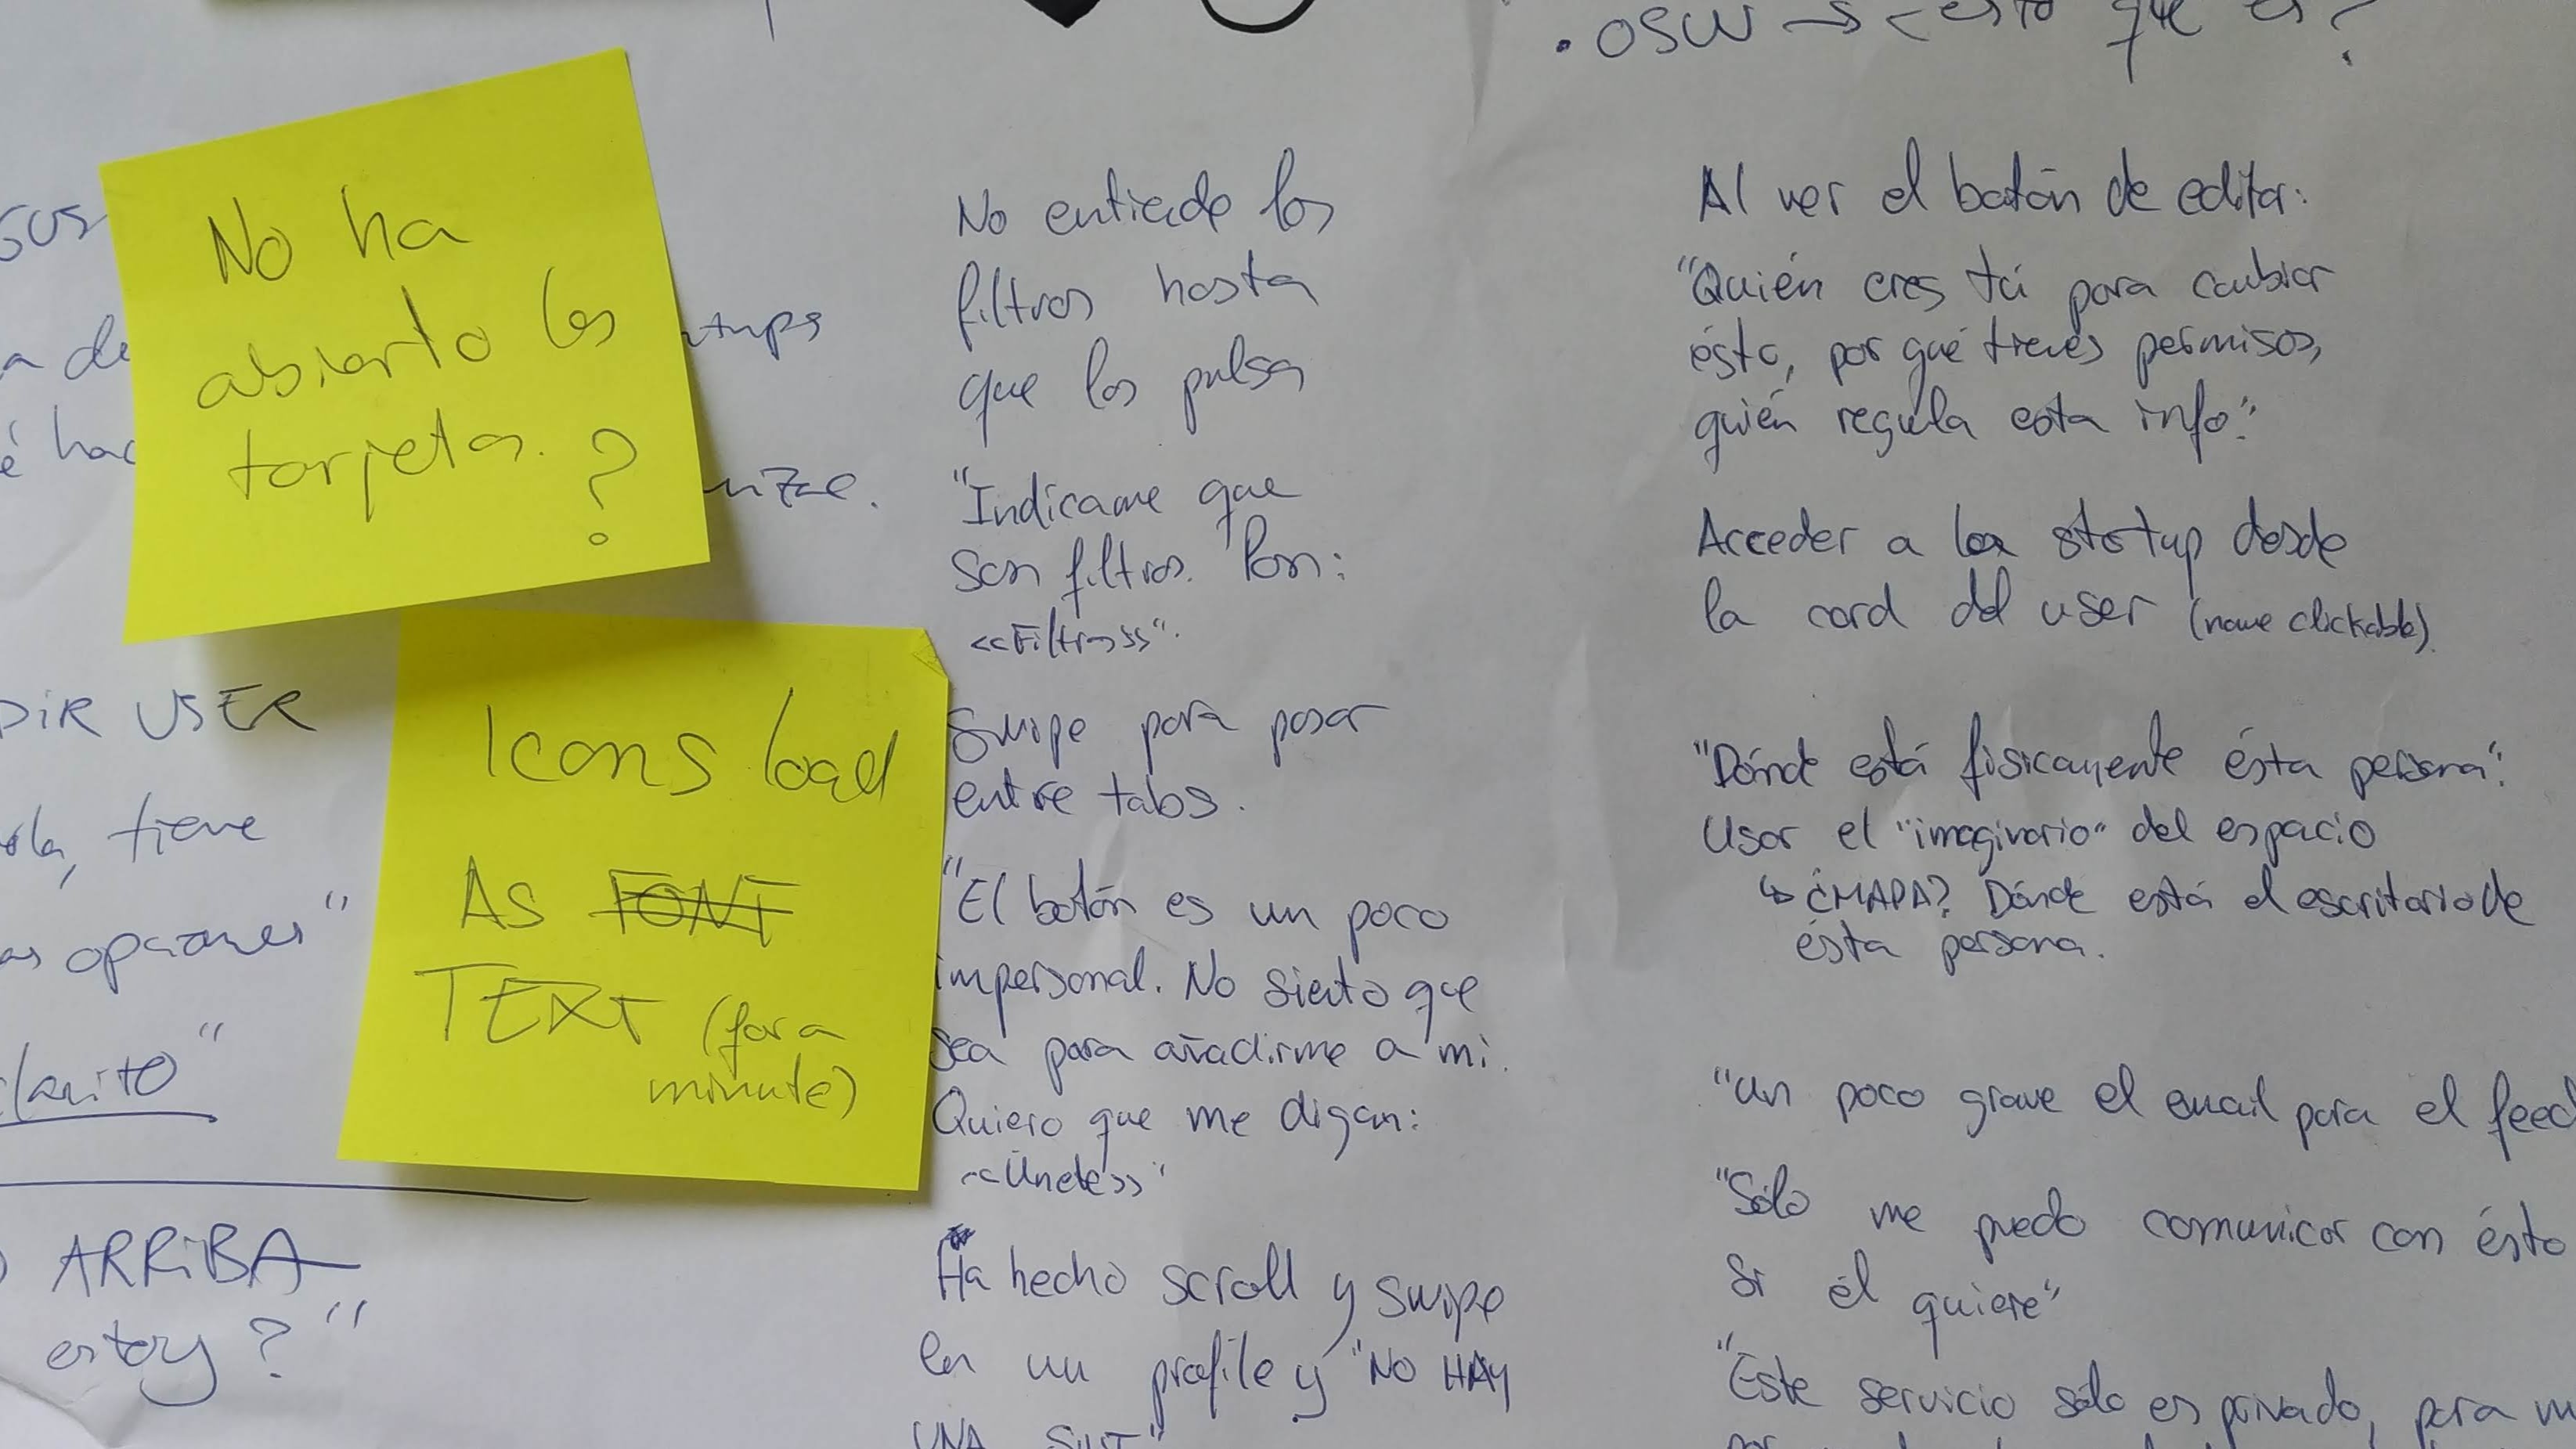 . OSW → ¿esto que es?
No ha
abierto las
tarjetas.
?
Icons load
AS FONT
TEXT (for a
minute)
a de
é hac
DIR USER
tiene
as opciones"
clarito"
ARRiBA
estoy?"
No entiende los
filtros hasta
que los pulsa
"Indícame que
son filtros. Pon:
<<Filtros>>".
Swipe para pasar
entre tabs.
"El botón es un poco
impersonal. No siento que
sea para añadirme a mi.
Quiero que me digan:
<<Únete>>"
Ha hecho scroll y swipe
en un profile y "NO HAY
UNA
Al ver el botón de editar:
"Quién eres tú para cambiar
ésto, por qué tienes permisos,
quién regula esta info".
Acceder a la startup desde
la card del user (name clickable).
"Dónde está físicamente ésta persona".
Usar el "imaginario" del espacio
↳ ¿MAPA? Dónde está el escritorio de
ésta persona.
"Un poco grave el email para el feed
"Sólo me puedo comunicar con ésto
si él quiere"
"Este servicio sólo es privado, para